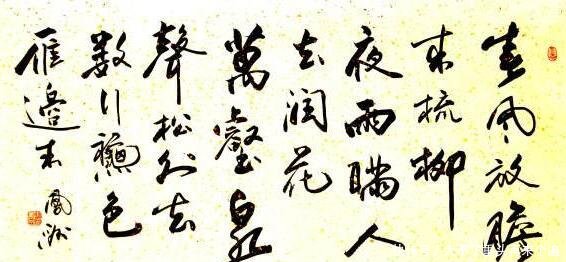 春风放胆
来梳柳
夜雨瞒人
去润花
萬壑泉
聲松外去
数行龝色
雁邊来